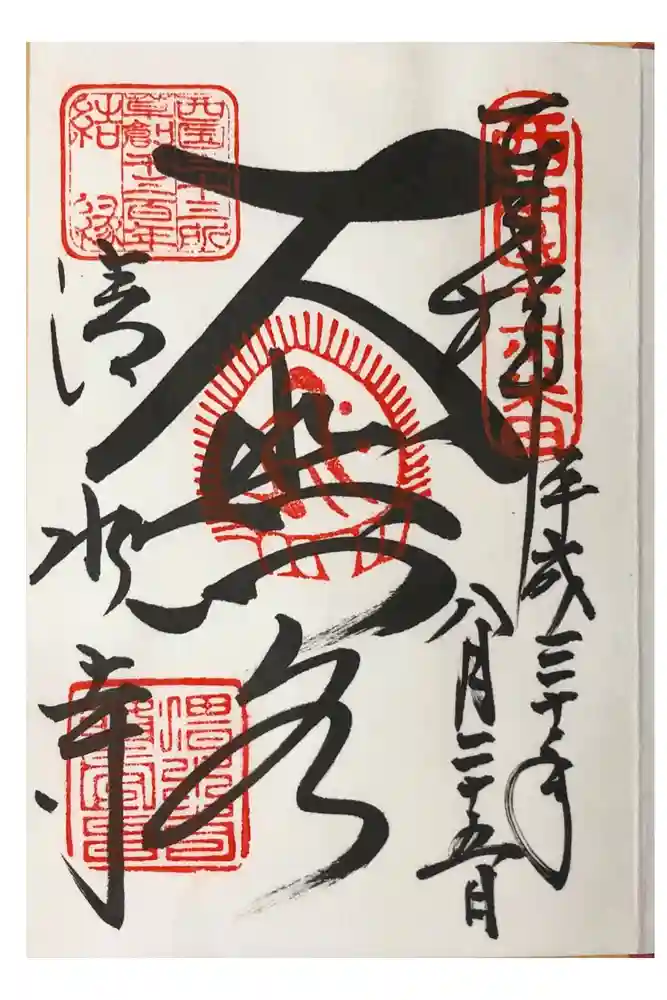 奉拝
西國十六番
平成三十年
八月二十五日
大悲閣
西国三十三所
草創千三百年
結縁
清水寺